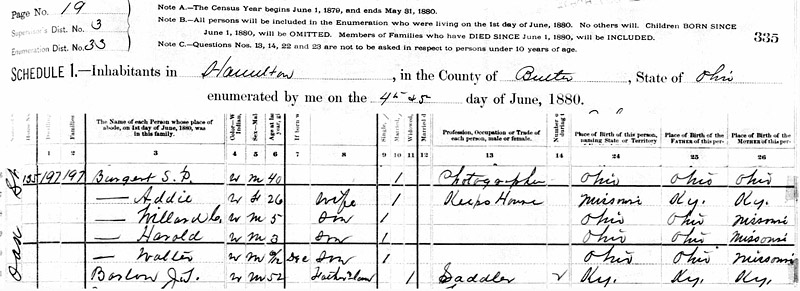 Page No. 19
Supervisor's Dist. No. 3
Enumeration Dist. No. 33
Note A.—The Census Year begins June 1, 1879, and ends May 31, 1880.
Note B.—All persons will be included in the Enumeration who were living on the 1st day of June, 1880. No others will. Children BORN SINCE
June 1, 1880, will be OMITTED. Members of Families who have DIED SINCE June 1, 1880, will be INCLUDED.
Note C.—Questions Nos. 13, 14, 22 and 23 are not to be asked in respect to persons under 10 years of age.
335
SCHEDULE 1.—Inhabitants in Hamilton, in the County of Butler, State of Ohio
enumerated by me on the 4th & 5 day of June, 1880.
The Name of each Person whose place of abode, on 1st day of June, 1880, was in this family.
Profession, Occupation or Trade of each person, male or female.
Place of Birth of this person, naming State or Territory
Place of Birth of the FATHER of this per-
Place of Birth of the MOTHER of this per-
1 2 3 4 5 6 7 8 9 10 11 12 13 14 24 25 26
135 197 197 Burgert S. P. W M 40 1 Photographer Ohio Ohio Ohio
— Addie W F 26 Wife 1 Keeps House Missouri Ky. Ky.
— Willard C. W M 5 Son 1 Ohio Ohio Missouri
— Harold W M 3 Son 1 Ohio Ohio Missouri
— Walter W M 6/12 Dec Son 1 Ohio Ohio Missouri
W M 52 Father in law 1 Saddler Ky. Ky. Ky.